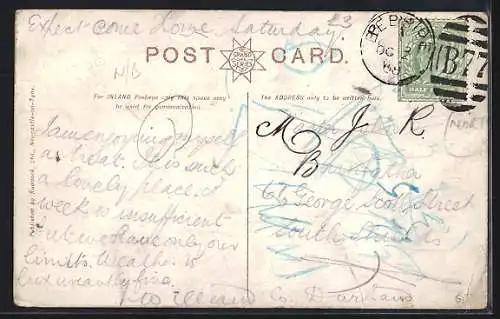 Expect come Home Saturday.
£3
POST CARD.
GRAND
SERIES
N/B
For INLAND Postage only this space may
be used for communication.
The ADDRESS only to be written here.
HALF
B77
OC
Published by
Ltd., Newcastle-on-Tyne.
I am enjoying myself
a treat. This is such
a lovely place. a
week is insufficient
but we have only our
limits. Weather is
luxuriantly fine.
M J. R.
B
67 George Scott Street
South Shields
Co. Durham